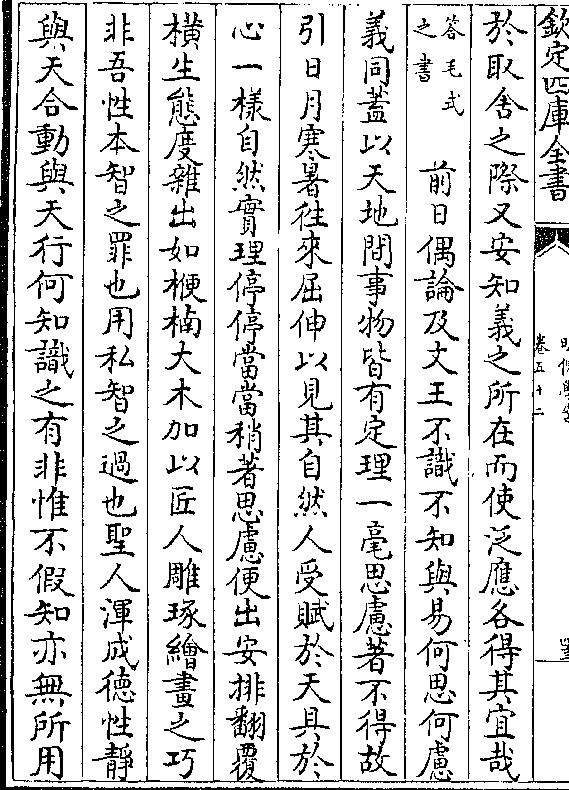 欽定四庫全書
卷五十二
於取舍之際又安知義之所在而使泛應各得其宜哉
答毛式
之書
前日偶論及文王不識不知與易何思何慮
義同蓋以天地間事物皆有定理一毫思慮著不得故
引日月寒暑往來屈伸以見其自然人受賦於天具於
心一樣自然實理停停當當稍著思慮便出安排翻覆
橫生態度雜出如楩楠大木加以匠人雕琢繪畫之巧
非吾性本智之罪也用私智之過也聖人渾成德性靜
與天合動與天行何知識之有非惟不假知亦無所用